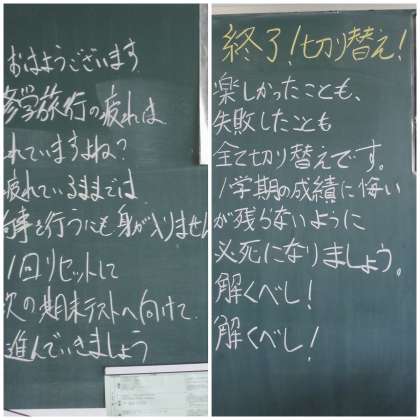 おはようございます
修学旅行の疲れは
れていますよね?
疲れているままでは
何事を行うにも身が入りません
1回リセットして
次の期末テストへ向けて
進んでいきましょう
終了!切り替え!
楽しかったことも、
失敗したことも
全て切り替えです。
1学期の成績に悔い
が残らないように
必死になりましょう。
解くべし!
解くべし!